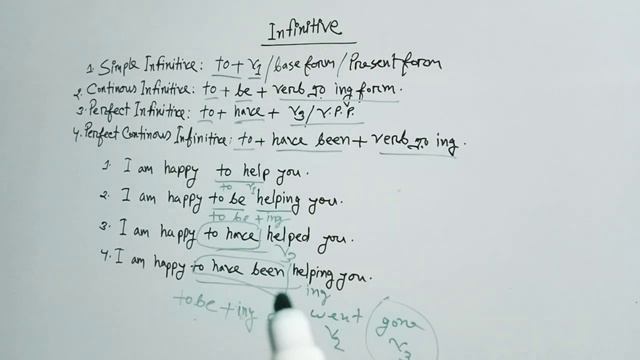 Infinitive
1. Simple Infinitive: to + V1 / base form / Present form
2. Continous Infinitive: to + be + verb ing form.
3. Perfect Infinitive: to + have + V3 / V.P.P.
4. Perfect Continous Infinitive: to + have been + verb ing.
1. I am happy to help you.
to V1
2. I am happy to be helping you.
to be + ing
3. I am happy to have helped you.
V3
4. I am happy to have been helping you.
ing
to be + ing went gone
V2 V3